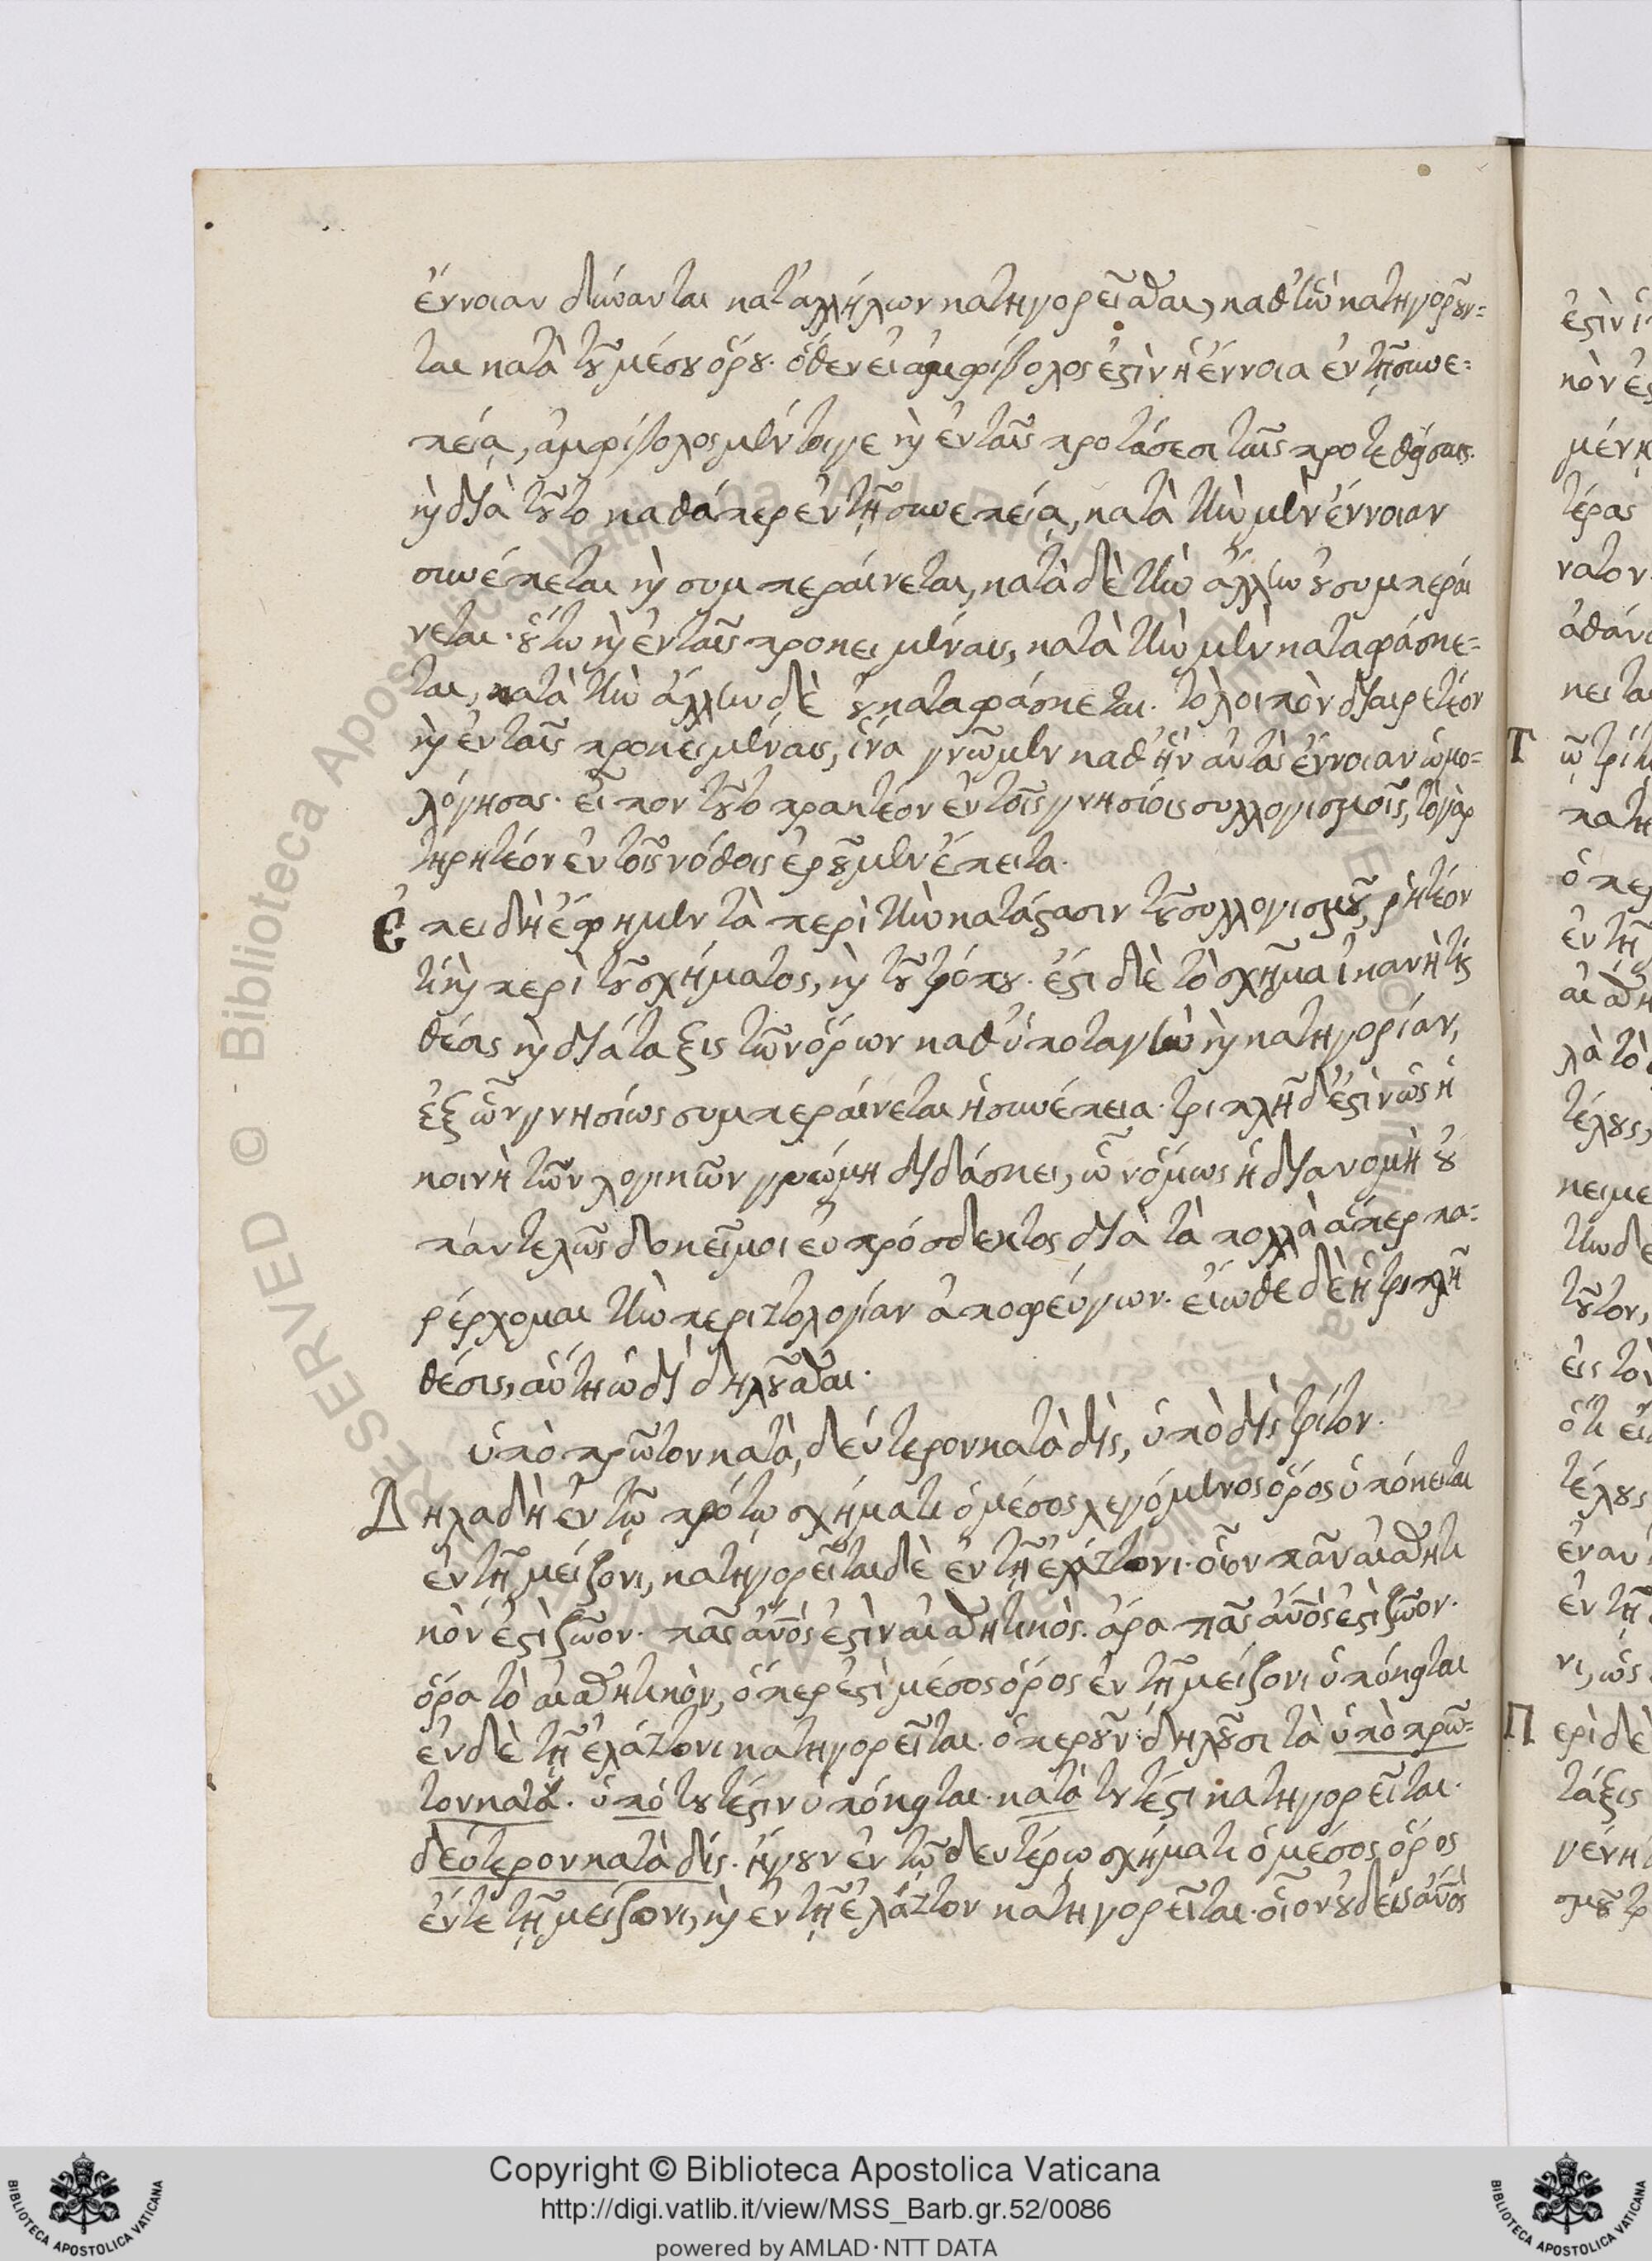 ἔννοιαν δύνανται κατ' ἀλλήλων κατηγορεῖσθαι, καθ' ἣν κατηγοροῦν-
ται κατὰ τοῦ μέσου ὅρου. ὅθεν εἰ ἀμφίβολος ἐστὶν ἡ ἔννοια ἐν τῇ συνε-
πείᾳ, ἀμφίβολος μέντοιγε καὶ ἐν ταῖς προτάσεσι ταῖς προτεθείσαις.
καὶ διὰ τοῦτο καθάπερ ἐν τῇ συνεπείᾳ, κατὰ τὴν μὲν ἔννοιαν
συνέπεται καὶ συμπεραίνεται, κατὰ δὲ τὴν ἄλλην οὐ συμπεραί
νεται. οὕτω καὶ ἐν ταῖς προκειμέναις, κατὰ τὴν μὲν καταφάσκε-
ται, κατὰ τὴν ἄλλην δὲ οὐ καταφάσκεται. τὸ λοιπὸν διαιρετέον
καὶ ἐν ταῖς προκειμέναις, ἵνα γνῶμεν καθ' ἣν αὐτὰς ἔννοιαν ὡμο-
λόγησας. εἶπον τοῦτο πρακτέον ἐν τοῖς γνησίοις συλλογισμοῖς, τὸ γὰρ
τηρητέον ἐν τοῖς νόθοις ἐροῦμεν ἔπειτα.
Ἐπειδὴ ἔφημεν τὰ περὶ τὴν κατάφασιν τοῦ συλλογισμοῦ, ῥητέον
τὶ καὶ περὶ τοῦ σχήματος, καὶ τοῦ τρόπου. ἔστι δὲ τὸ σχῆμα ἱκανή τις
θέσις καὶ διάταξις τῶν ὅρων καθ' ὑποταγὴν καὶ κατηγορίαν,
ἐξ ὧν γνησίως συμπεραίνεται ἡ συνέπεια. τριπλῆ δ' ἐστὶν ὡς ἡ
κοινὴ τῶν λογικῶν γνώμη διδάσκει, ὧν ὅμως ἡ διανομὴ οὐ
παντελῶς δοκεῖ μοι εὐπρόσδεκτος διὰ τὰ πολλὰ ἅπερ πα-
ρέρχομαι τὴν περιττολογίαν ἀποφεύγων. εἴωθε δὲ ἡ τριπλῆ
θέσις, αὕτη ὡδὶ δηλοῦσθαι.
ὑπὸ πρῶτον κατὰ, δεύτερον κατὰ δὶς, ὑπὸ δὶς τρίτον.
Δηλαδὴ ἐν τῷ πρώτῳ σχήματι ὁ μέσος λεγόμενος ὅρος ὑπόκειται
ἐν τῇ μείζονι, κατηγορεῖται δὲ ἐν τῇ ἐλάττονι. οἷον πᾶν αἰσθητι
κὸν ἐστὶ ζῶον. πᾶς ἄνος ἐστὶν αἰσθητικὸς. ἄρα πᾶς ἄνος ἐστὶ ζῶον.
ὅρα τὸ αἰσθητικὸν, ὅπερ ἐστὶ μέσος ὅρος ἐν τῇ μείζονι ὑπόκειται
ἐν δὲ τῇ ἐλάττονι κατηγορεῖται. ὅπερ οὖν δηλοῦσι τὰ ὑπὸ πρῶ-
τον κατὰ. ὑπό τουτέστιν ὑπόκειται. κατὰ τουτέστι κατηγορεῖται.
δεύτερον κατὰ δίς. ἤγουν ἐν τῷ δευτέρῳ σχήματι ὁ μέσος ὅρος
ἔν τε τῇ μείζονι, καὶ ἐν τῇ ἐλάττον κατηγορεῖται. οἷον οὐδεὶς ἄνος
Copyright © Biblioteca Apostolica Vaticana
http://digi.vatlib.it/view/MSS_Barb.gr.52/0086
powered by AMLAD·NTT DATA
BIBLIOTECA APOSTOLICA VATICANA
BIBLIOTECA APOSTOLICA VATICANA